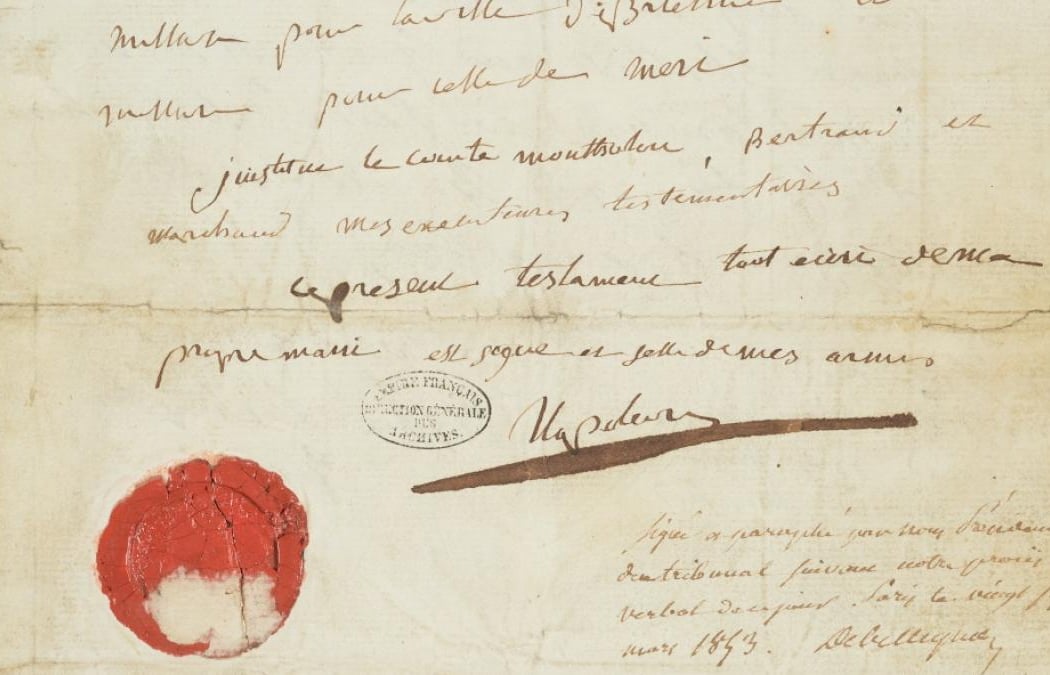 million pour la ville de Brienne et
million pour celle de meri
j'institue le comte montholon, Bertrand et
marchand mes executeures testementaires
ce present testament tout ecrit de ma
propre main est signé et sellé de mes armes
Napoleon
EMPIRE FRANÇAIS
DIRECTION GÉNÉRALE
DES
ARCHIVES.
Signé et paraphé par nous Président
du tribunal suivant notre procès
verbal de ce jour. Paris le vingt
mars 1853. Debelleyme